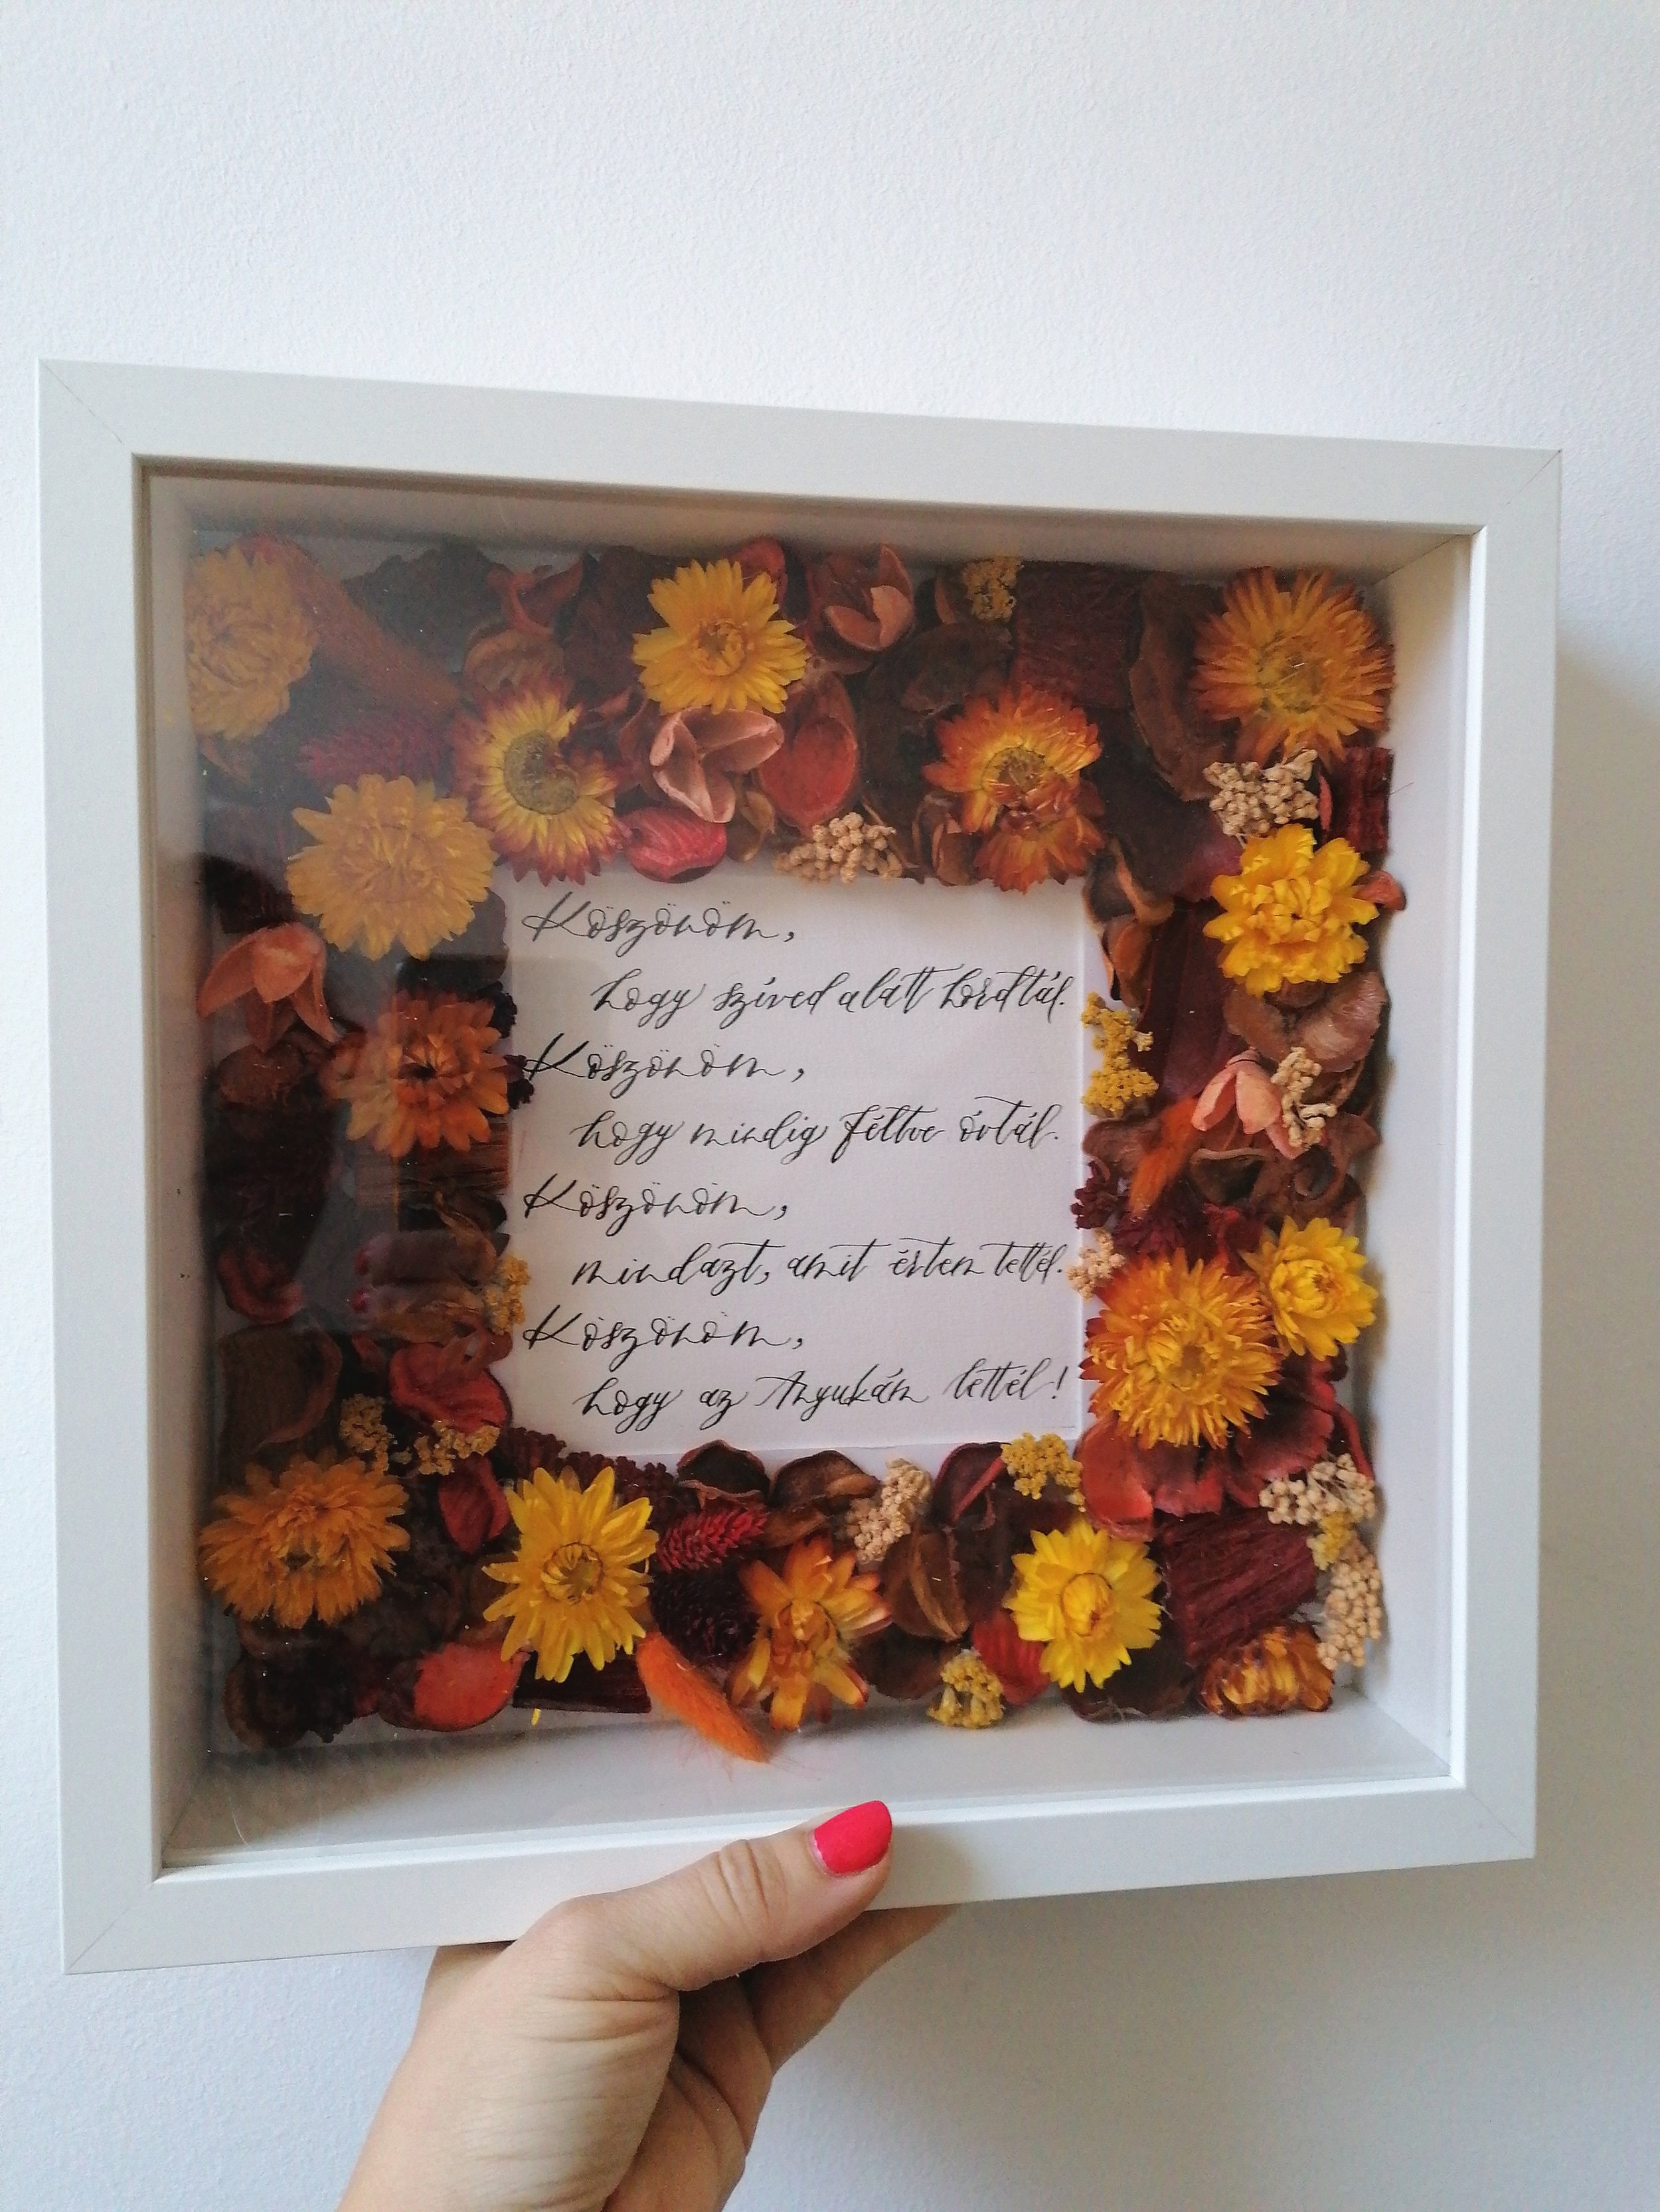 Köszönöm,
hogy szíved alatt hordtál.
Köszönöm,
hogy mindig féltve óvtál.
Köszönöm,
mindazt, amit értem tettél.
Köszönöm,
hogy az Anyukám lettél!